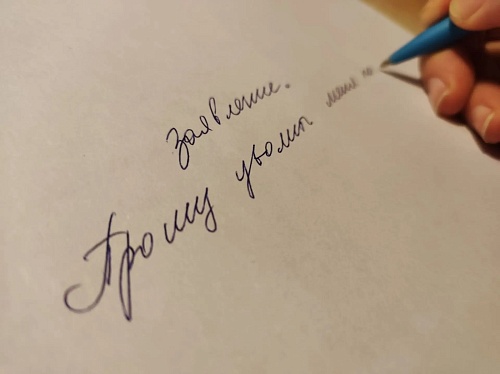 Заявление.
Прошу уволить меня по